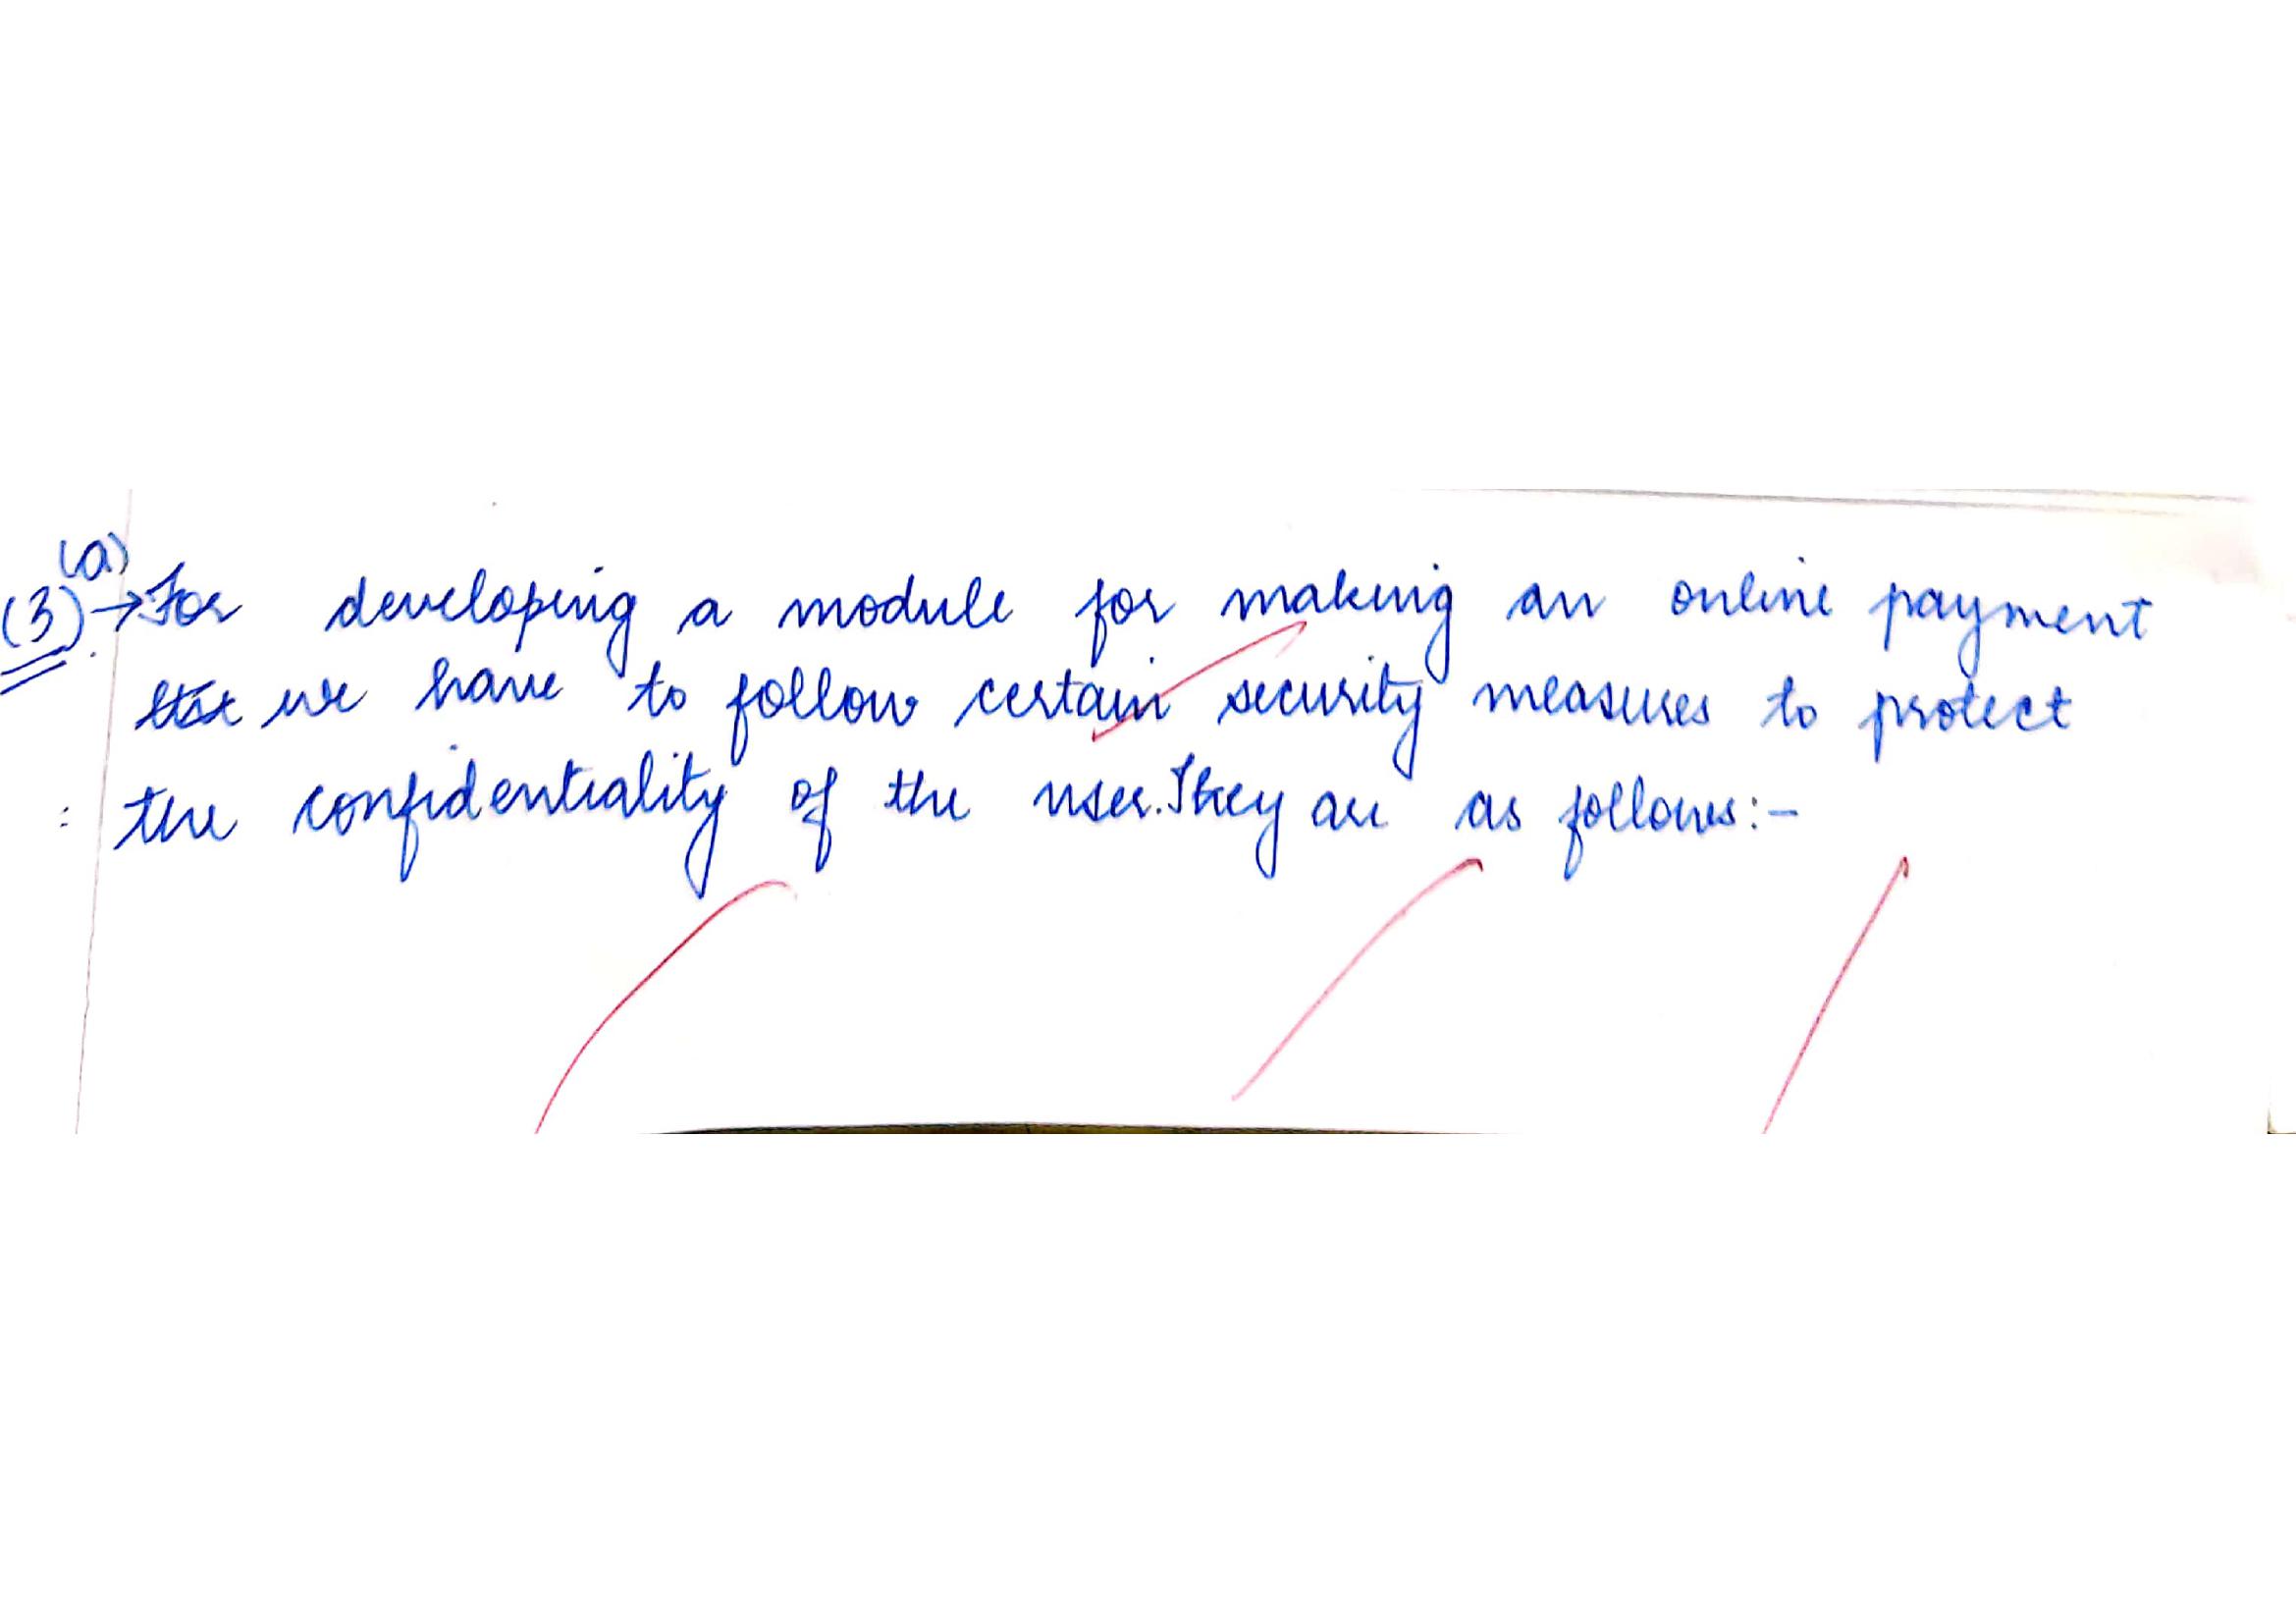 (3)(a)→For developing a module for making an online payment
we have to follow certain security measures to protect
the confidentiality of the user. They are as follows:-